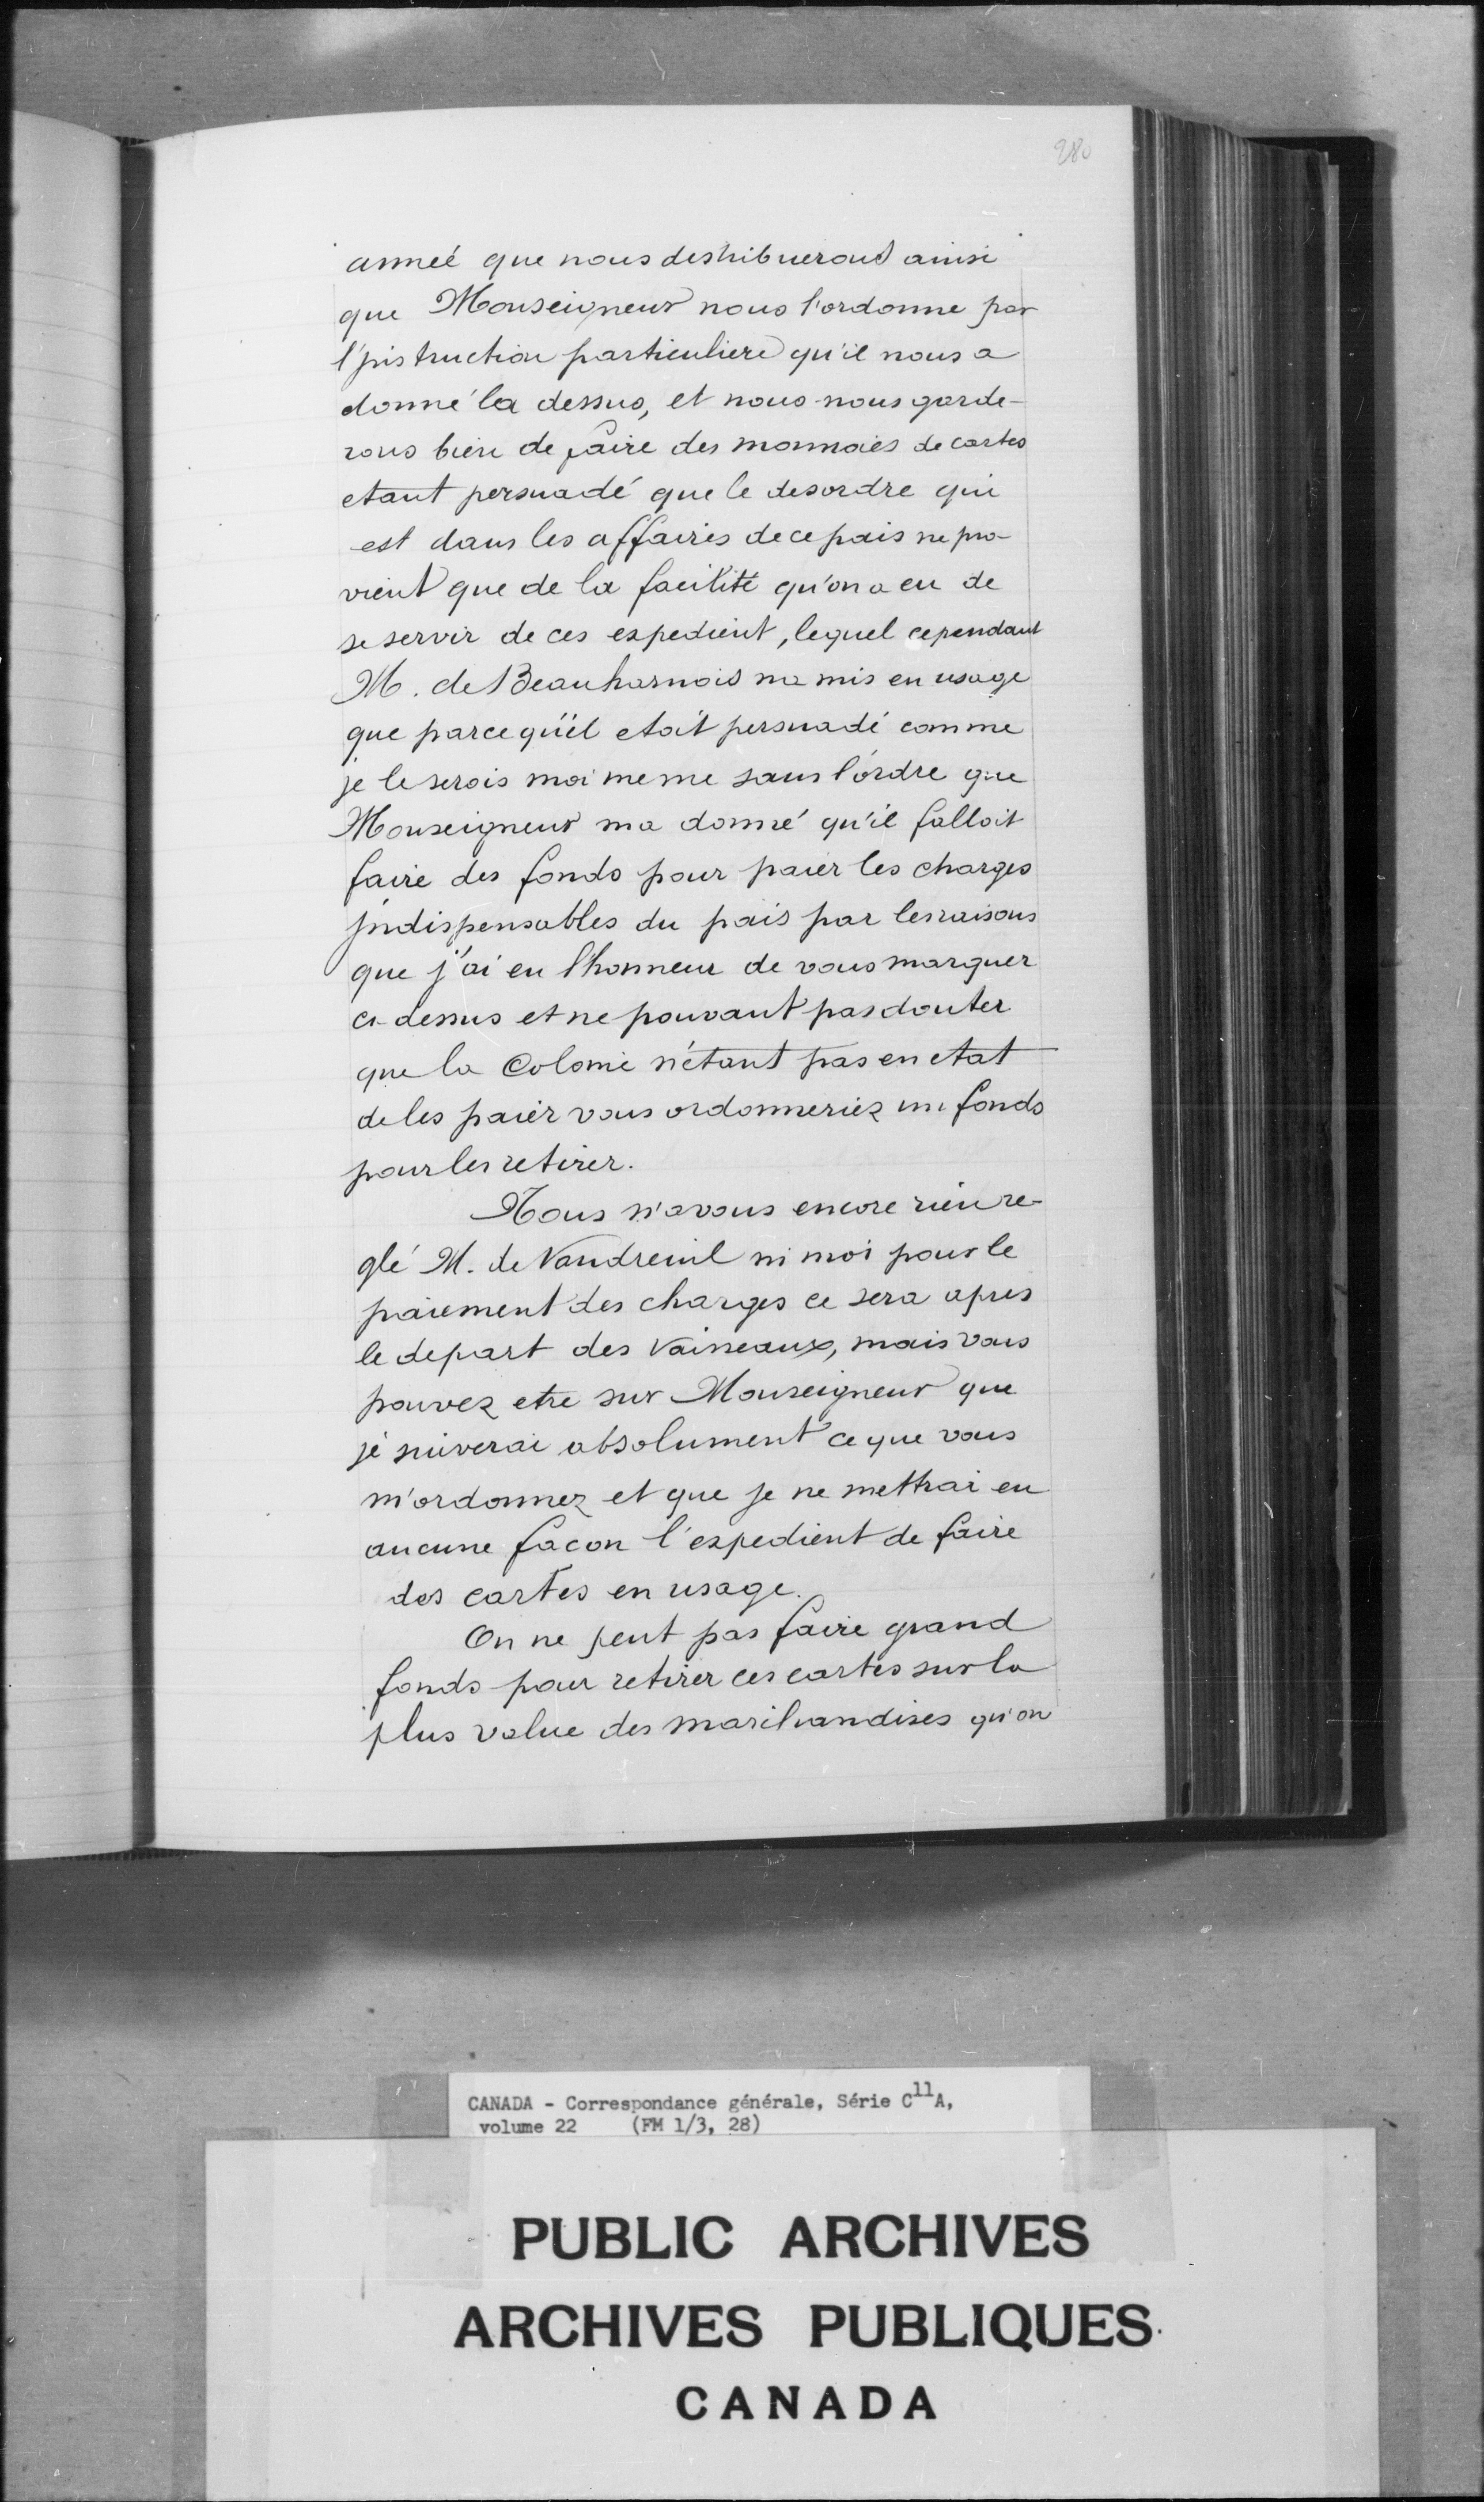 280
anneé que nous destribuerons ainsi
que Monseigneur nous l'ordonne par
l'jnstruction particuliere qu'il nous a
donné la dessus, et nous nous garde-
rons bien de faire des monnoies de cartes
etant persuadé que le desordre qui
est dans les affaires de ce pais ne pro-
vient que de la facilité qu'on a eu de
se servir de ces expedient, lequel cependant
M. de Beauharnois na mis en usage
que parcequ'il etoit persuadé comme
je le serois moi meme sans l'ordre que
Monseigneur ma donné qu'il falloit
faire des fonds pour paier les charges
jndispensables du pais par les raisons
que j'ai eu l'honneur de vous marquer
ci-dessus et ne pouvant pas douter
que la Colonie n'étant pas en etat
de les paier vous ordonneriez un fonds
pour les retirer.
Nous n'avons encore rien re-
glé M. de Vaudreuil ni moi pour le
paiement des charges ce sera apres
le depart des Vaisseaux, mais vous
pouvez etre sur Monseigneur que
je suiverai absolument ce que vous
m'ordonnez et que je ne mettrai en
aucune facon l'expedient de faire
des cartes en usage.
On ne peut pas faire grand
fonds pour retirer ces cartes sur la
plus value des marchandises qu'on
CANADA - Correspondance générale, Série C11A,
volume 22 (FM 1/3, 28)
PUBLIC ARCHIVES
ARCHIVES PUBLIQUES
CANADA